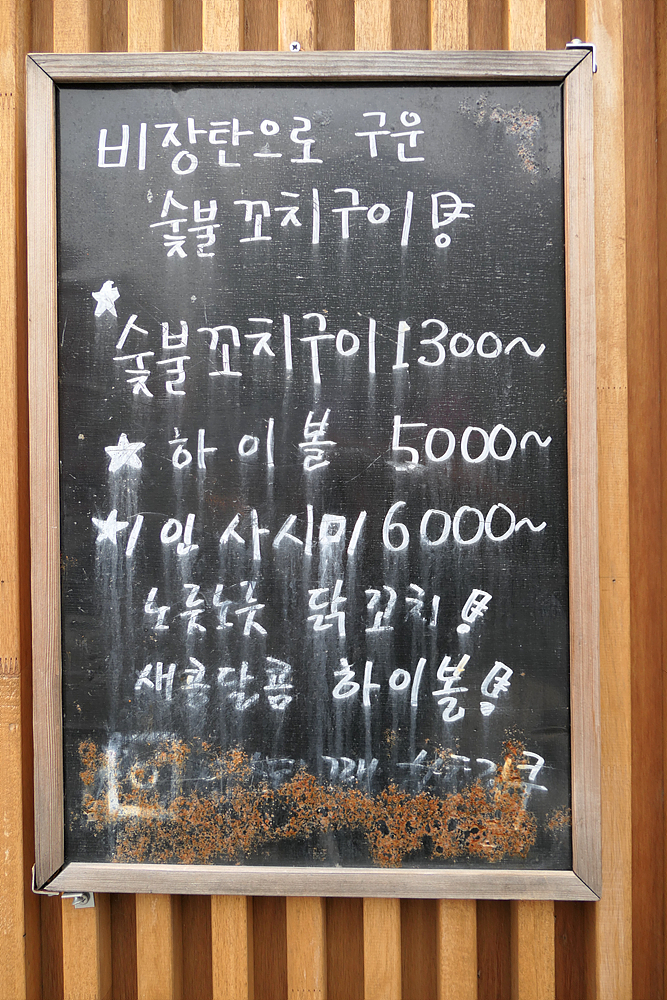 비장탄으로 구운
숯불꼬치구이!
숯불꼬치구이 1300~
하이볼 5000~
1인 사시미 6000~
노릇노릇 닭꼬치!
새콤달콤 하이볼!